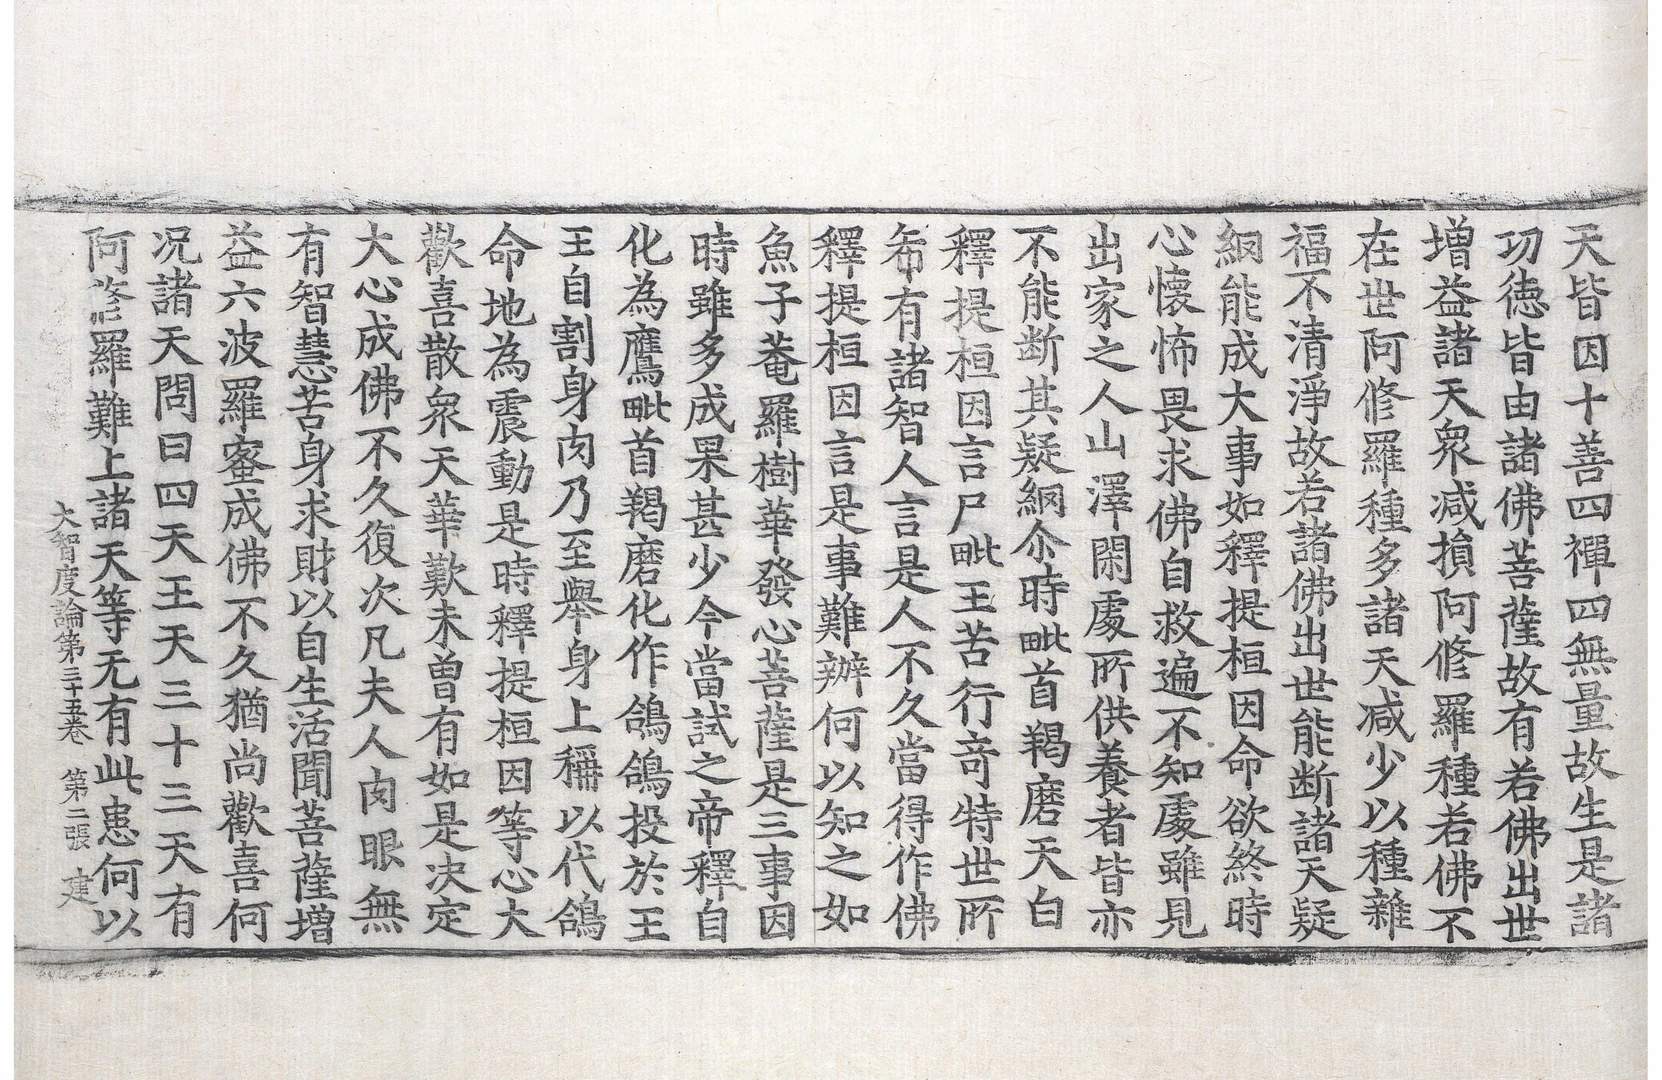 天皆因十善四禪四無量故生是諸
功德皆由諸佛菩薩故有若佛出世
增益諸天衆减損阿修羅種若佛不
在世阿修羅種多諸天减少以種雜
福不清淨故若諸佛出世能斷諸天疑
網能成大事如釋提桓因命欲終時
心懷怖畏求佛自救遍不知處雖見
出家之人山澤閑處所供養者皆亦
不能断其疑網尒時毗首羯磨天白
釋提桓因言尸毗王苦行竒特世所
希有諸智人言是人不久當得作佛
釋提桓因言是事難辦何以知之如
魚子菴羅樹華發心菩薩是三事因
時雖多成果甚少今當試之帝釋自
化為鷹毗首羯磨化作鴿鴿投於王
王自割身肉乃至舉身上稱以代鴿
命地為震動是時釋提桓因等心大
歡喜散衆天華歎未曽有如是决定
大心成佛不久復次凡夫人肉眼無
有智慧苦身求財以自生活聞菩薩增
益六波羅蜜成佛不久猶尚歡喜何
况諸天問曰四天王天三十三天有
阿修羅難上諸天等无有此患何以
大智度論第三十五卷 第二張 建